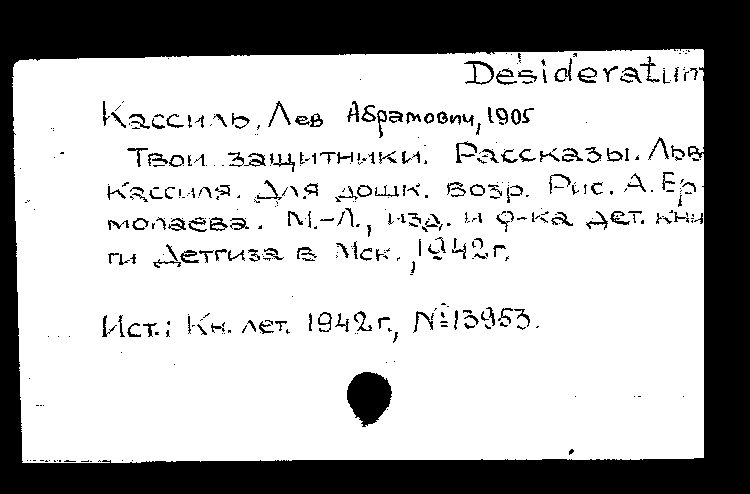 Desideratum
Кассиль, Лев Абрамович, 1905
Твои защитники. Рассказы. Льва
Кассиля. Для дошк. возр. Рис. А. Ер-
молаева. М.-Л., изд. и ф-ка дет. кни
ги Детгиза в Мск., 1942 г.
Ист.: Кн. лет. 1942 г., № 13953.